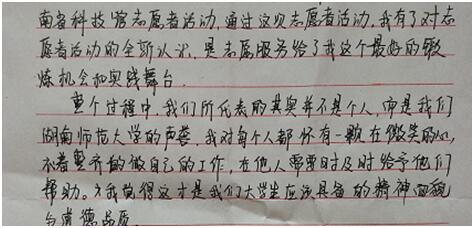 南省科技馆志愿者活动,通过这次志愿者活动,我有了对志
愿者活动的全新认识,是志愿服务给了我这个最好的锻
炼机会和实践舞台.
整个过程中,我们所代表的其实并不是个人,而是我们
湖南师范大学的声誉.我对每个人都怀有一颗在微笑的心,
本着兢的做自己的工作,在他人需要时及时给予他们
帮助.我觉得这才是我们大学生应该具备的精神面貌
与道德品质.